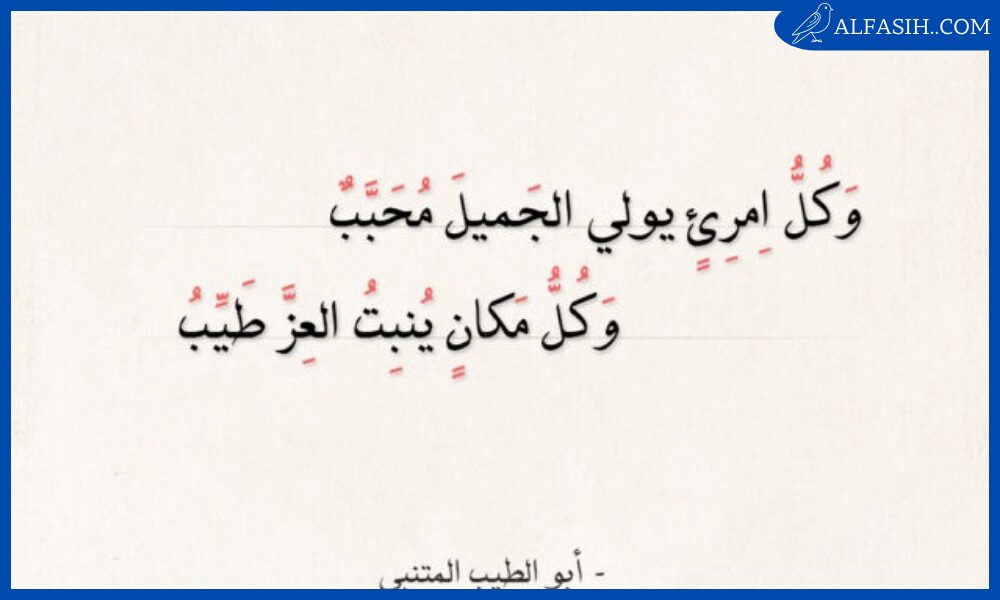 ALFASIH..COM
وَكُلُّ اِمرِئٍ يولي الجَميلَ مُحَبَّبٌ
وَكُلُّ مَكانٍ يُنبِتُ العِزَّ طَيِّبُ
- أبو الطيب المتنبي